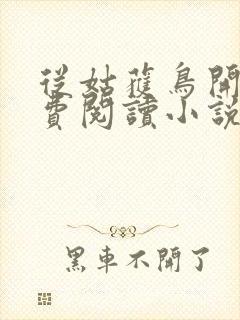 從姑獲鳥開
費閱讀小說
黑車不開了